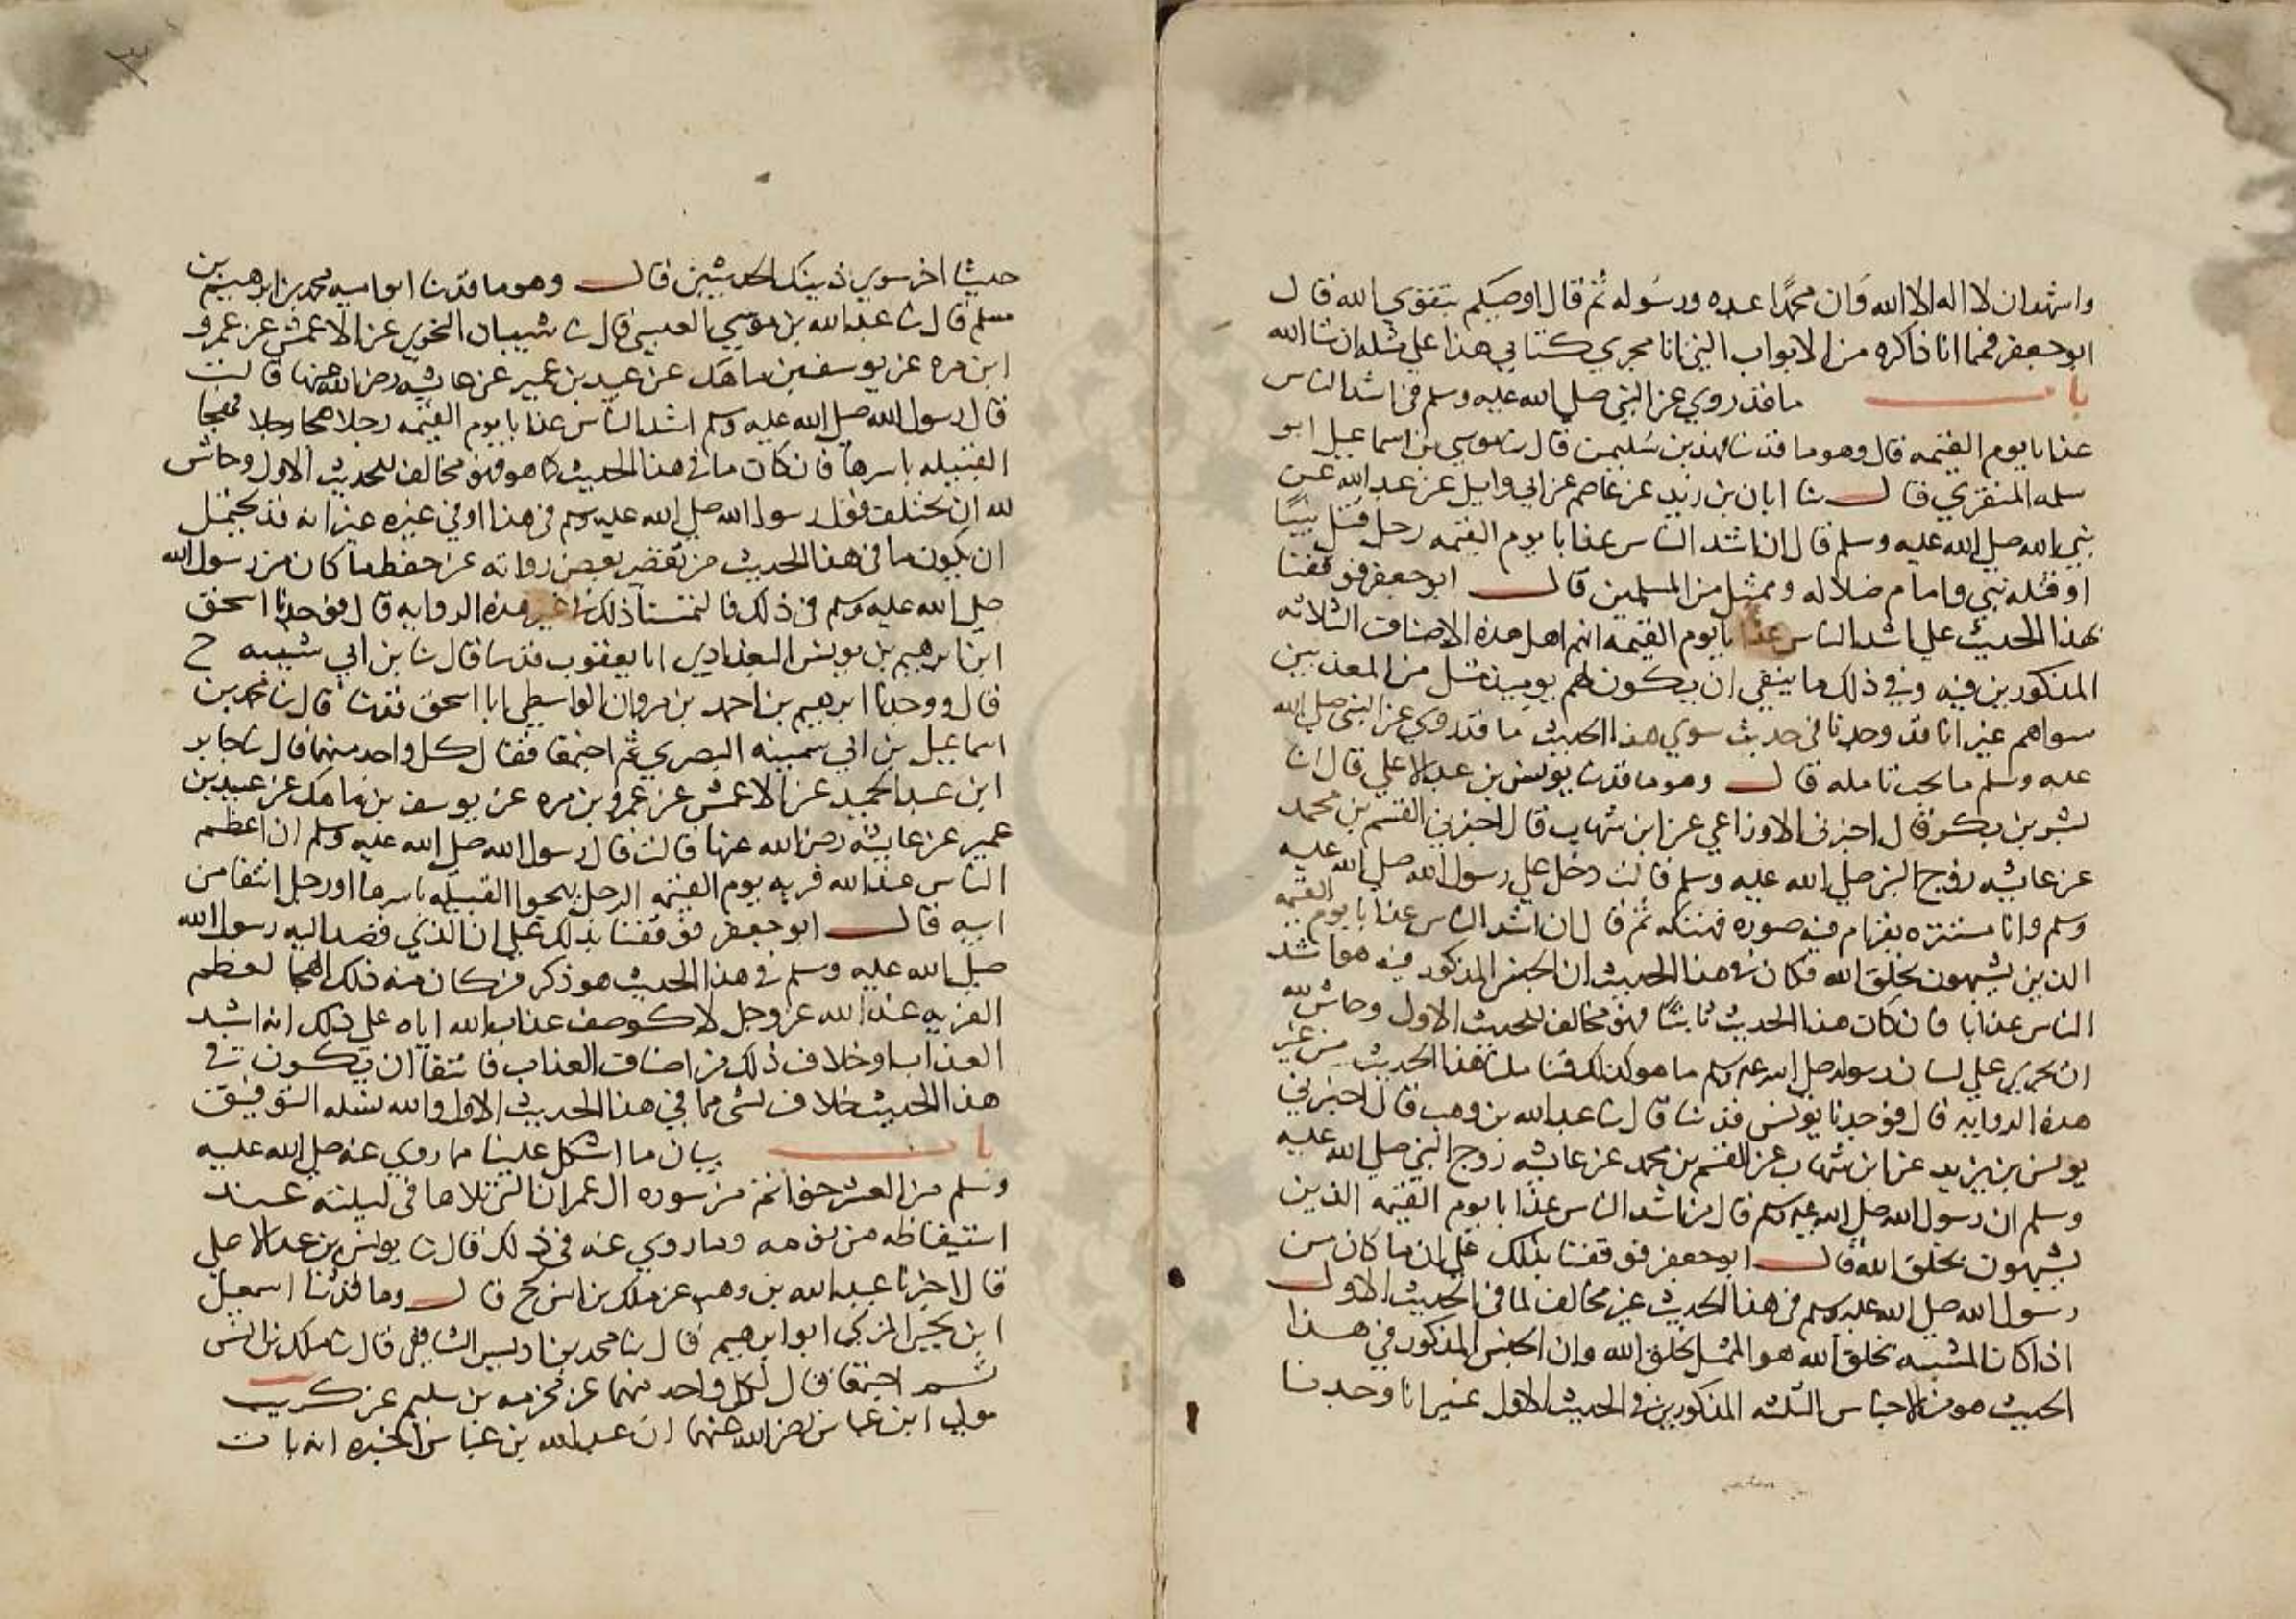 واشهد ان لا اله الا الله وان محمدًا عبده ورسوله ثم قال اوصيكم بتقوي الله قال
ابو جعفر فمما انا ذاكره من الابواب التي انا مجري كتابي هذا علي مثله ان شا الله
باب ما قد روي عن النبي صلي الله عليه وسلم في اشد الناس
عذابا يوم القيمه قال وهو ما قد ثنا فهد بن سليمن قال ثنا موسي بن اسماعيل ابو
سلمه المنقري قال ثنا ابان بن زيد عن عاصم عن ابي وايل عن عبد الله عن
نبي الله صلي الله عليه وسلم قال ان اشد الناس عذابا يوم القيمه رجل قتل نبيًا
او قتله نبي وامام ضلاله وممثل من المسلمين قال ابو جعفر فوقفنا
بهذا الحديث علي اشد الناس عذابا يوم القيمه انهم اهل هذه الاصناف الثلاثه
المذكورين فيه وفي ذلك ما ينفي ان يكون لهم يوميذ مثل من المعذبين
سواهم غير انا قد وجدنا في حديث سوي هذا الحديث ما قد روي عن النبي صلي الله
عليه وسلم ما يجب تامله قال وهو ما قد ثنا يونس بن عبد الاعلي قال انا
بشر بن بكر قال اخبرني الاوزاعي عن ابن شهاب قال اخبرني القسم بن محمد
عن عايشه زوج النبي صلي الله عليه وسلم قالت دخل علي رسول الله صلي الله عليه
وسلم وانا مستتره بقرام فيه صوره فهتكه ثم قال ان اشد الناس عذابا يوم القيمه
الذين يشبهون بخلق الله فكان في هذا الحديث ان الجنس المذكور فيه هو اشد
الناس عذابا فان كان هذا الحديث ثابتًا فهو مخالف للحديث الاول وحاش لله
ان يجري علي لسان رسوله صلي الله عليه وسلم ما هو كذلك هذا الحديث من غير
هذه الروايه قال فوجدنا يونس قد ثنا قال ثنا عبد الله بن وهب قال اخبرني
يونس بن يزيد عن ابن شهاب عن القسم بن محمد عن عايشه زوج النبي صلي الله عليه
وسلم ان رسول الله صلي الله عليه وسلم قال من اشد الناس عذابا يوم القيمه الذين
يشبهون بخلق الله قال ابو جعفر فوقفنا بذلك علي ان ما كان من
رسول الله صلي الله عليه وسلم في هذا الحديث غير مخالف لما في الحديث الاول
اذا كان المشبه بخلق الله هو الممثل بخلق الله وان الجنس المذكور في هذا
الحديث هو من الاجناس الثلثه المذكورين في الحديث الاول غير انا وجدنا
حديثا اخر سوي ذينك الحديثين قال وهو ما قد ثنا ابو اميه محمد بن ابرهيم بن
مسلم قال ثنا عبد الله بن موسي العبسي قال ثنا شيبان النحوي عن الاعمش عن عمرو
ابن مره عن يوسف بن ماهك عن عبيد بن عمير عن عايشه رضي الله عنها قالت
قال رسول الله صلي الله عليه وسلم اشد الناس عذابا يوم القيمه رجلا هجا رجلا فهجا
القبيله باسرها فان كان ما في هذا الحديث كما هو فهو مخالف للحديث الاول وحاش
لله ان يختلف قول رسول الله صلي الله عليه وسلم في هذا او في غيره غير انه قد يحتمل
ان يكون ما في هذا الحديث من تقصير بعض رواته عن حفظ ما كان من رسول الله
صلي الله عليه وسلم في ذلك فالتمسنا ذلك غير هذه الروايه قال فوجدنا اسحق
ابن ابرهيم بن يونس البغدادي ابا يعقوب قد ثنا قال ثنا بن ابي شيبه ح
قال ووجدنا ابرهيم بن احمد بن مروان الواسطي ابا اسحق قد ثنا قال ثنا محمد بن
اسماعيل بن ابي سمينه البصري ثم اجتمعا فقال كل واحد منهما قال ثنا جابر
ابن عبد الحميد عن الاعمش عن عمرو بن مره عن يوسف بن ماهك عن عبيد بن
عمير عن عايشه رضي الله عنها قالت قال رسول الله صلي الله عليه وسلم ان اعظم
الناس عند الله فريه يوم القيمه الرجل يهجوا القبيله باسرها او رجل انتفا من
ابيه قال ابو جعفر فوقفنا بذلك علي ان الذي قصد اليه رسول الله
صلي الله عليه وسلم في هذا الحديث هو ذكر من كان منه ذلك الهجا لعظم
الفريه عند الله عز وجل لا كوصف عذاب الله اياه علي ذلك انه اشد
العذاب او خلاف ذلك من اصناف العذاب فانتفا ان يكون في
هذا الحديث خلاف لشي مما في هذا الحديث الاول والله نسله التوفيق
باب بيان ما اشكل علينا مما روي عنه صلي الله عليه
وسلم من العشر خواتم من سوره ال عمران التي تلاها في ليلته عند
استيقاظه من نومه وما روي عنه في ذلك قال ثنا يونس بن عبد الاعلي
قال اخبرنا عبد الله بن وهب عن ملك بن انس ح قال وما قد ثنا اسمعيل
ابن يحيي المزني ابو ابرهيم قال ثنا محمد بن ادريس الشافعي قال ثنا ملك بن انس
ثم اجتمعا فقال لكل واحد منهما عن مخرمه بن سليم عن كريب
مولي ابن عباس رضي الله عنهما ان عبد الله بن عباس اخبره انه بات